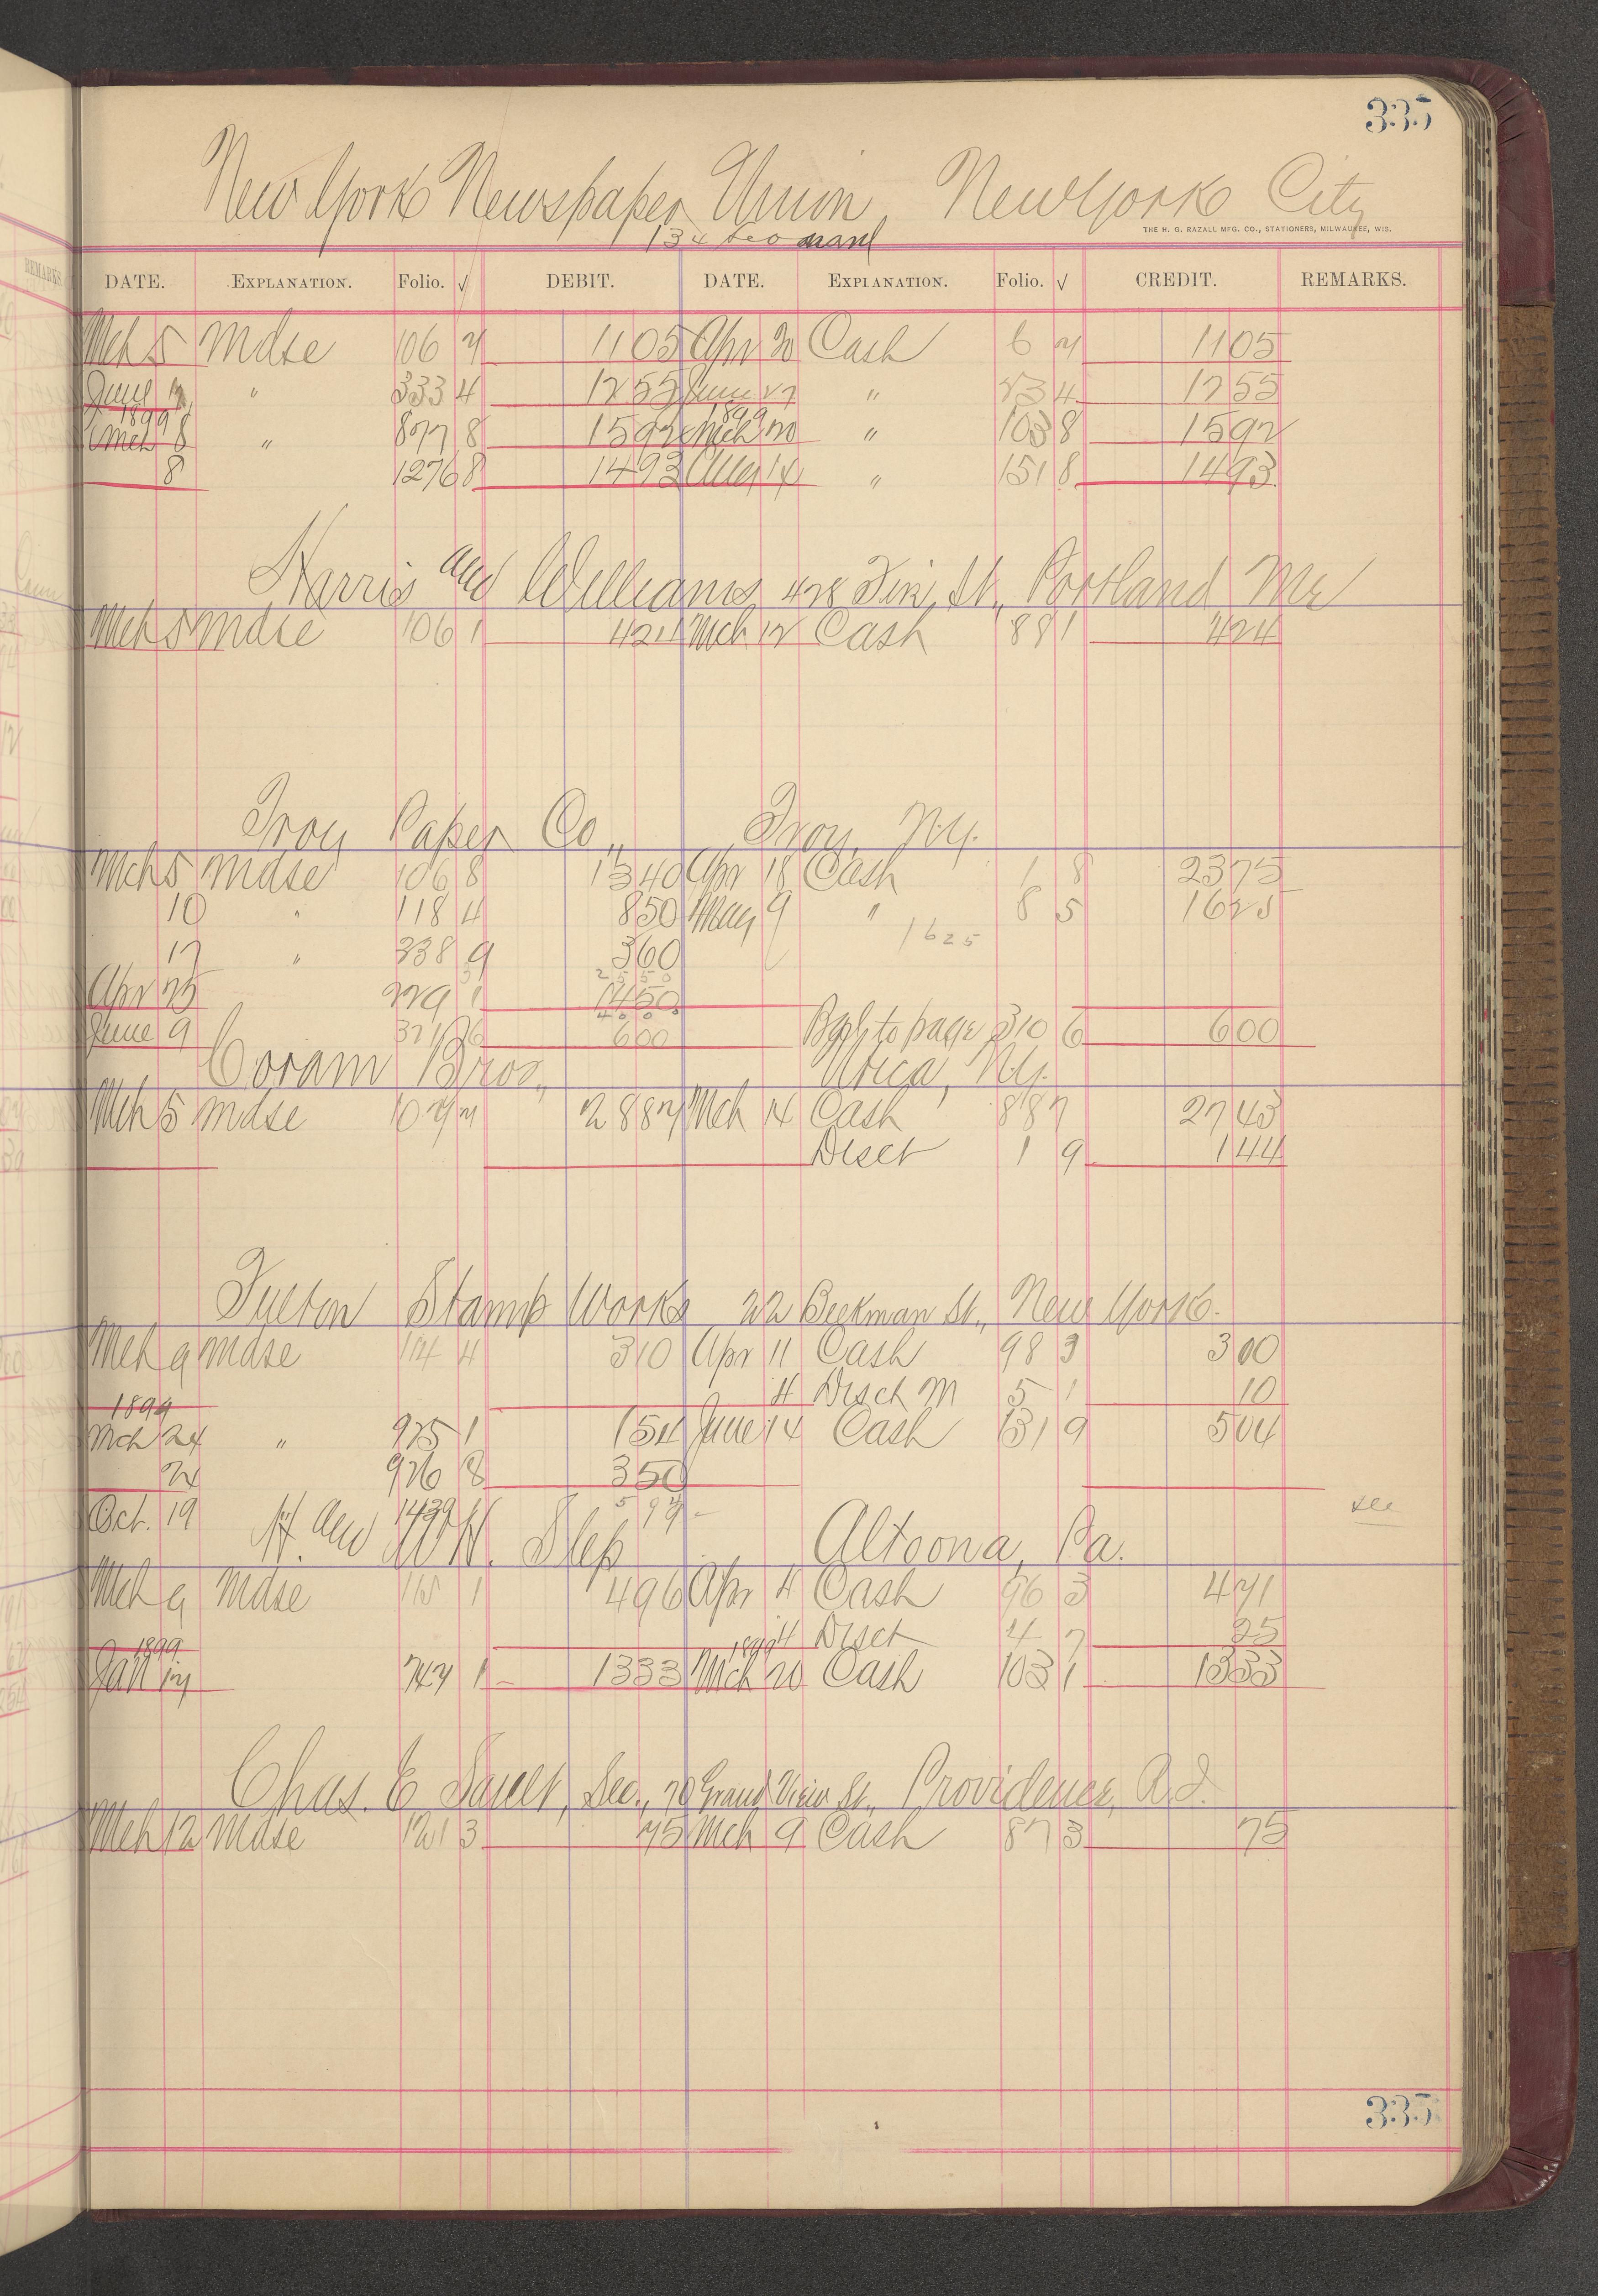 335
New York Newspaper Union, New York City
134 Leonard
THE H. G. RAZALL MFG. CO., STATIONERS, MILWAUKEE, WIS.
DATE. EXPLANATION. Folio. √ DEBIT. DATE. EXPLANATION. Folio. √ CREDIT. REMARKS.
Mch 5 Mdse 106 7 1105 Apr 20 Cash 6 7 1105
June " 333 4 1255 June 27 " 23 4 1255
1899 1899
Mch 8 " 877 8 1592 Mch 20 " 103 8 1592
8 1276 8 1493 Aug 14 " 151 8 1493
Harris and Williams, St., Portland Me
Mch 5 Mdse 106 1 424 Mch 12 Cash 88 1 424
Troy Paper Co., Troy, N.Y.
Mch 5 Mdse 106 8 1340 Apr 18 Cash 1 8 2375
10 " 118 4 850 May 9 " 8 5 1625
1625
17 " 338 9 360
2550
Apr 25 229 1 1450
4000
June 9 321 600 to page 310 6 600
Coram Bros., Utica, N.Y.
Mch 5 Mdse 107 7 2887 Mch 14 Cash 88 7 2743
Disct 1 9 144
Fulton Stamp Works, 22 Beekman St., New York.
Mch 9 Mdse 114 4 310 Apr 11 Cash 98 3 300
Disct M 5 1 10
1899
Mch 24 " 925 1 154 June 14 Cash 131 9 504
24 926 8 350
Oct. 19 1439 597 see
H. and W. H. Slep Altoona, Pa.
Mch 9 Mdse 115 1 496 Apr 4 Cash 96 3 471
4 Disct 4 7 25
1899 1899
Jan 17 747 1 1333 Mch 20 Cash 103 1 1333
Chas. E. Sec., 70 Grand View St., Providence, R.I.
Mch 12 Mdse 121 3 75 Mch 9 Cash 87 3 75
335